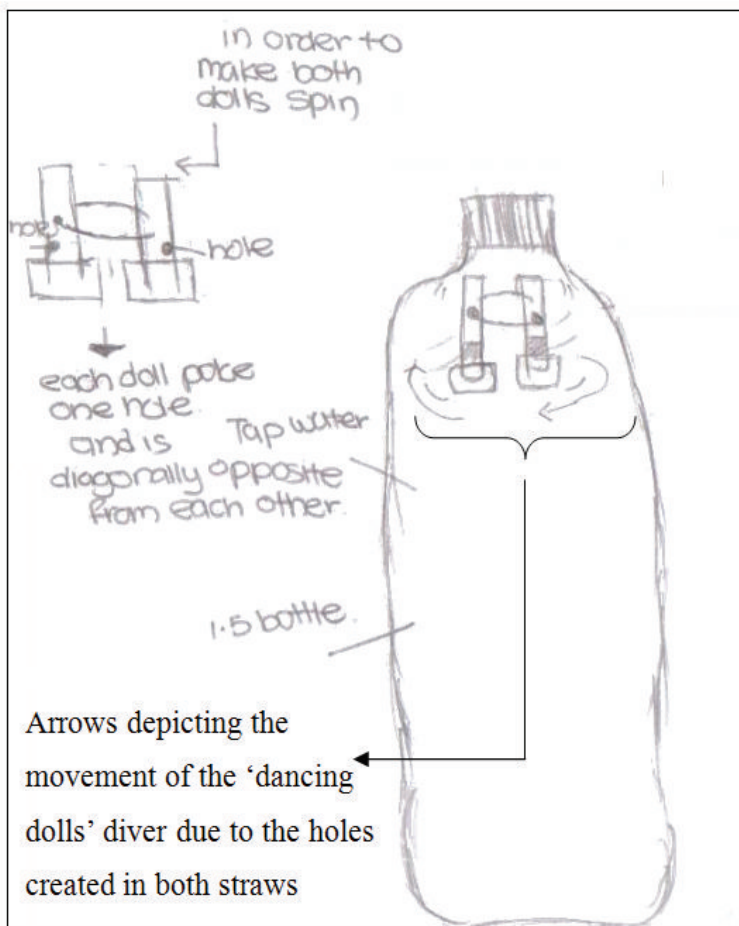 in order to
make both
dolls spin
hole
hole
each doll poke
one hole
and is
diagonally opposite
from each other.
Tap water
1.5 bottle.
Arrows depicting the
movement of the ‘dancing
dolls’ diver due to the holes
created in both straws